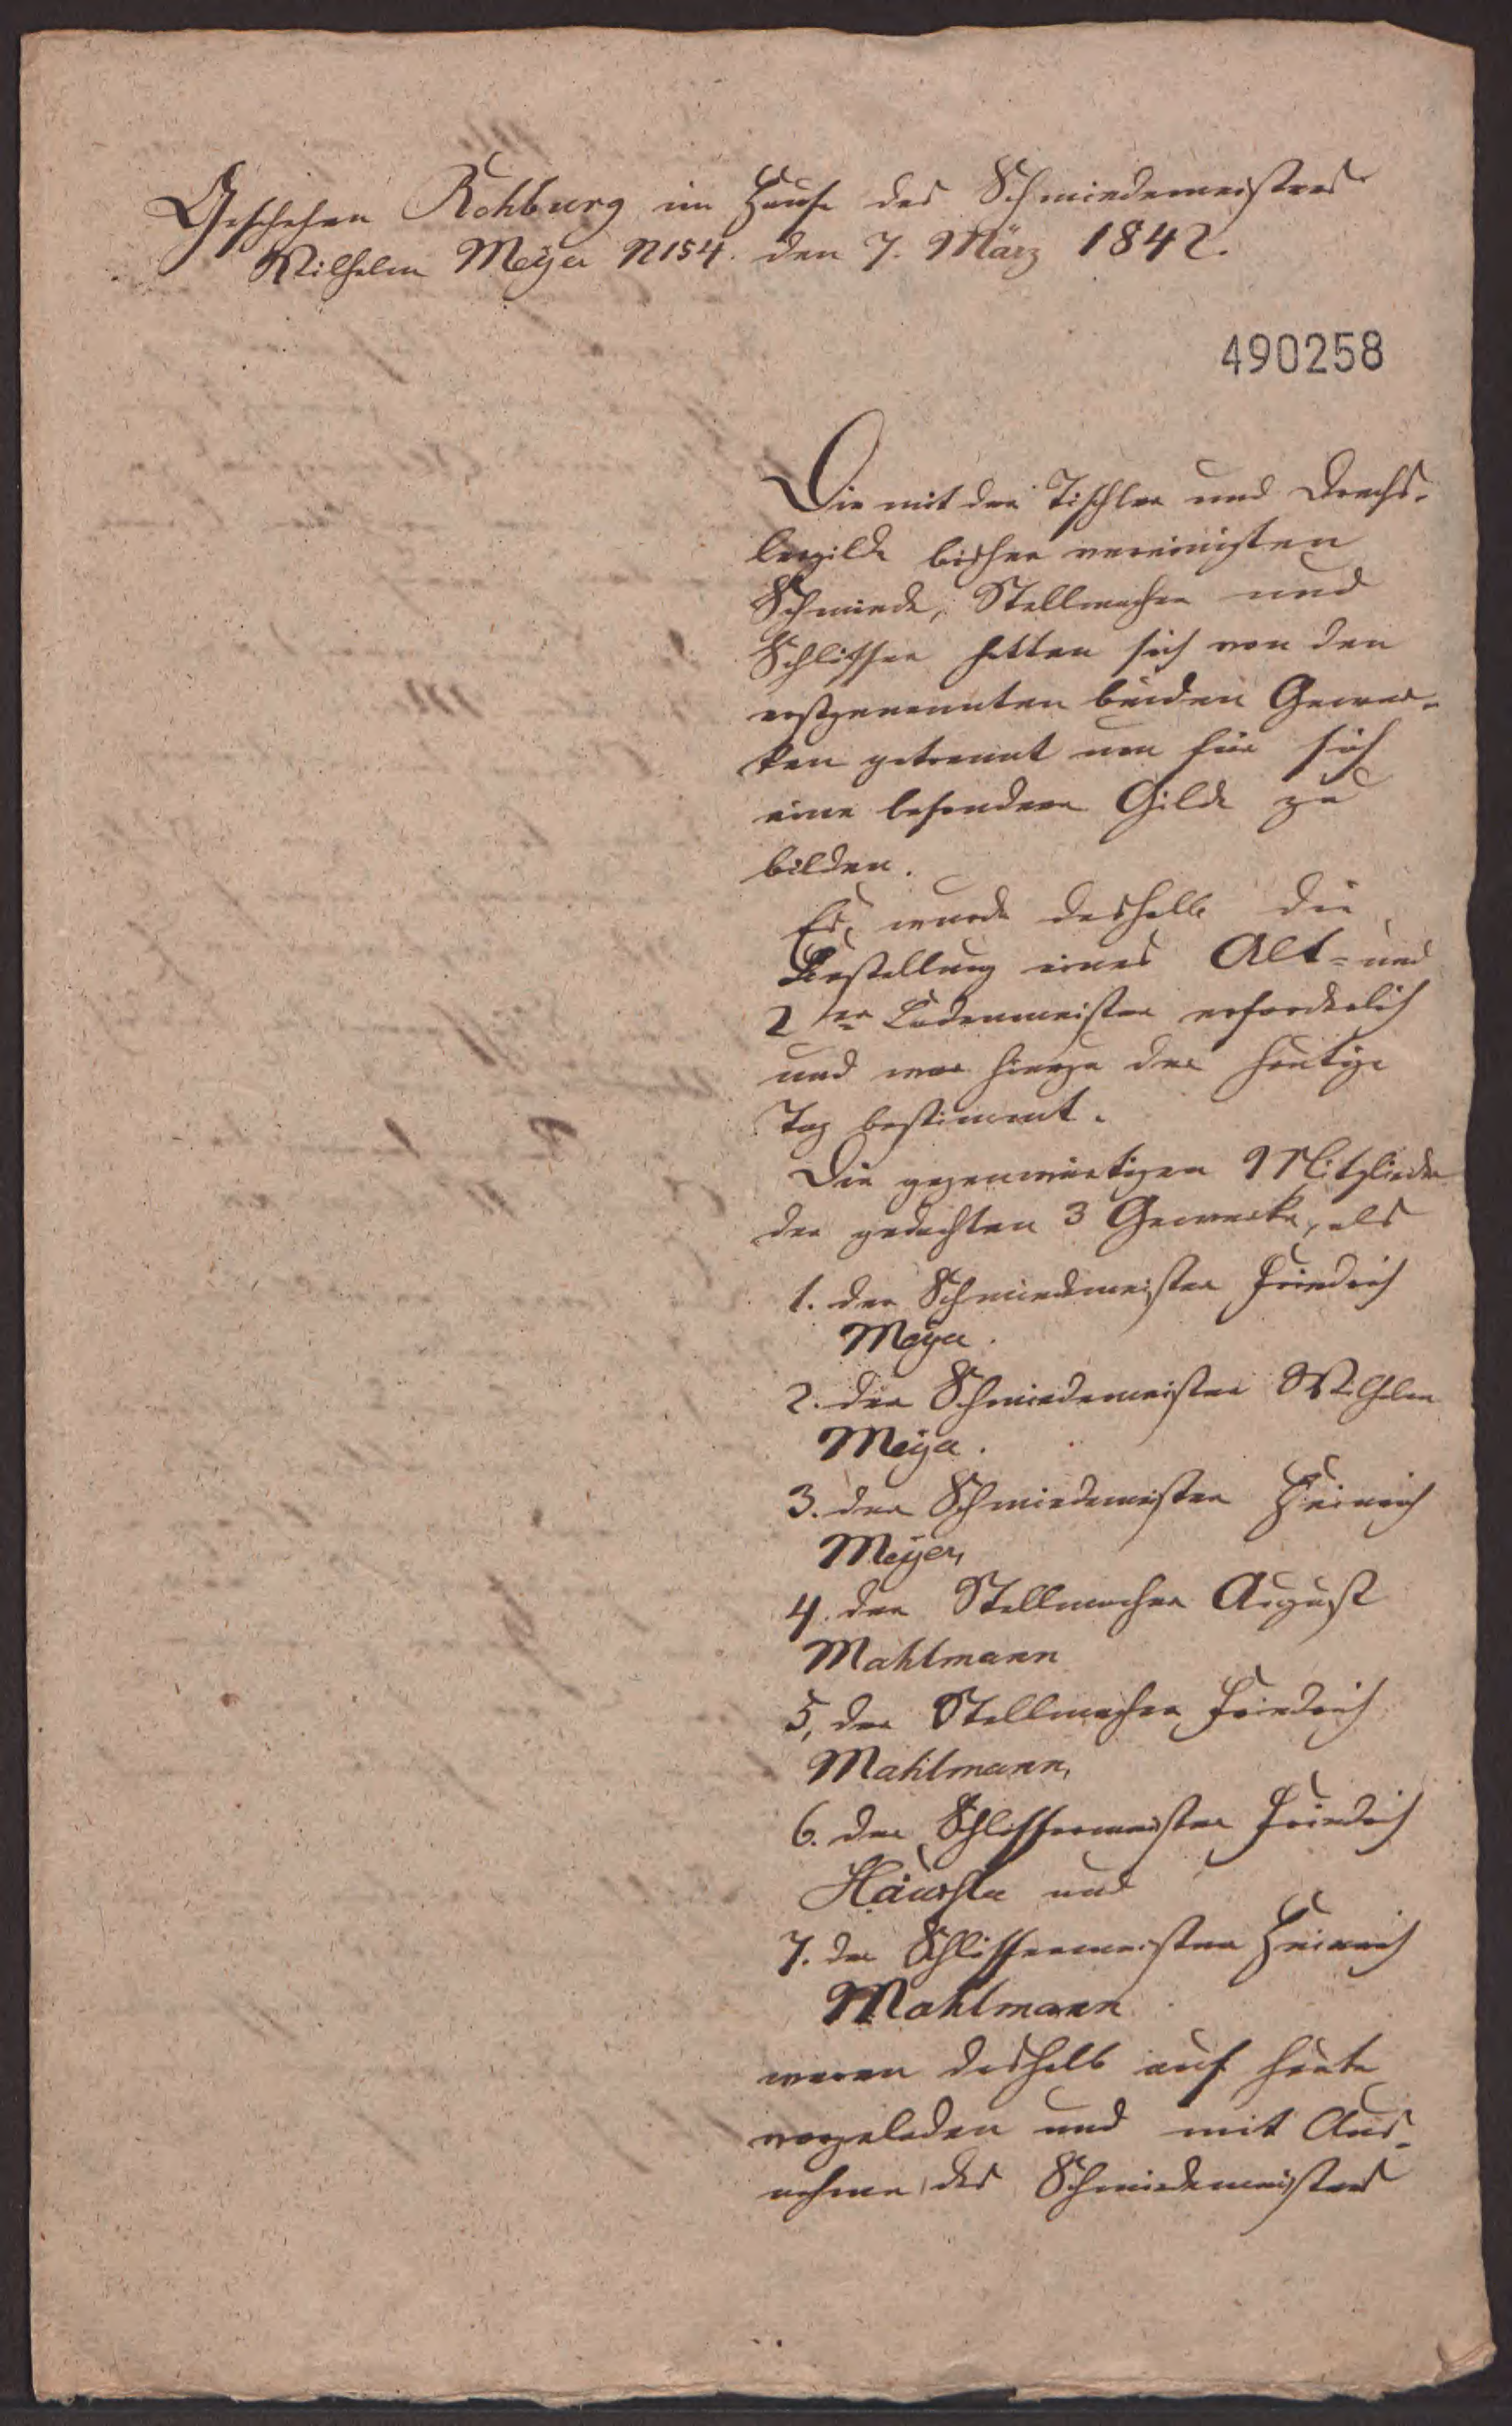 Geschehen Rehburg im Hause des Schmiedemeisters
Wilhelm Meyer N 154. den 7. März 1842.
490258
Die mit der Tischler und Drechs-
lergilde bisher vereinigten
Schmiede, Stellmacher und
Schlosser hatten sich von den
erstgenannten beiden Gewer-
ken getrennt um für sich
eine besondere Gilde zu
bilden.
Es wurde deshalb die
Bestellung eines Alt- und
2ter Ladenmeister erforderlich
und war hierzu der heutige
Tag bestimmt.
Die gegenwärtigen Mitglieder
der gedachten 3 Gewerke, als
1. der Schmiedemeister Friedrich
Meyer.
2. der Schmiedemeister Wilhelm
Meyer.
3. der Schmiedemeister Heinrich
Meyer,
4. der Stellmacher August
Mahlmann
5, der Stellmacher Friedrich
Mahlmann,
6. der Schlossermeister Friedrich
und
7. der Schlossermeister Heinrich
Mahlmann
waren deshalb auf heute
vorgeladen und mit Aus-
nahme des Schmiedemeisters